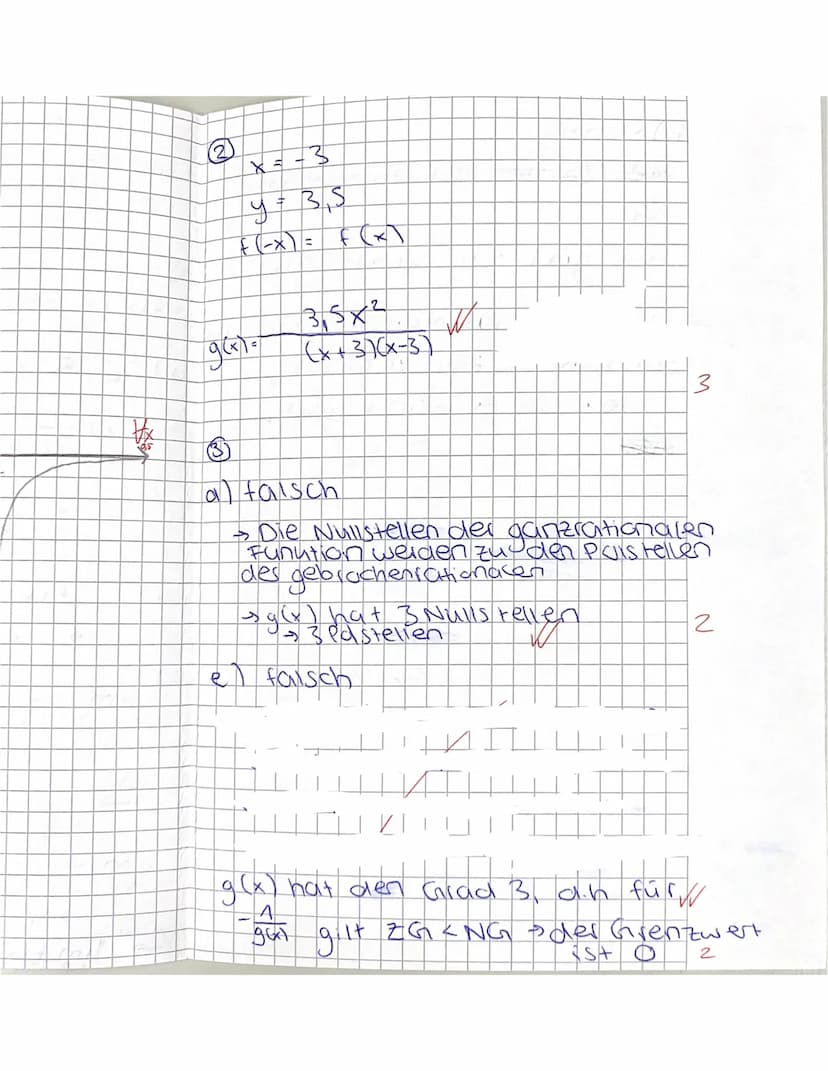 ②
x = -3
y = 3,5
f(-x) = f(x)
g(x) = 3,5x² / (x+3)(x-3)
3
x
③
a) falsch
→ Die Nullstellen der ganzrationalen
Funktion werden zu den Polstellen
der gebrochenrationalen
→ g(x) hat 3 Nullstellen
2
→ 3 Polstellen
e) falsch
g(x) hat den Grad 3, d.h für
-1/g(x) gilt ZG < NG → der Grenzwert
ist 0
2